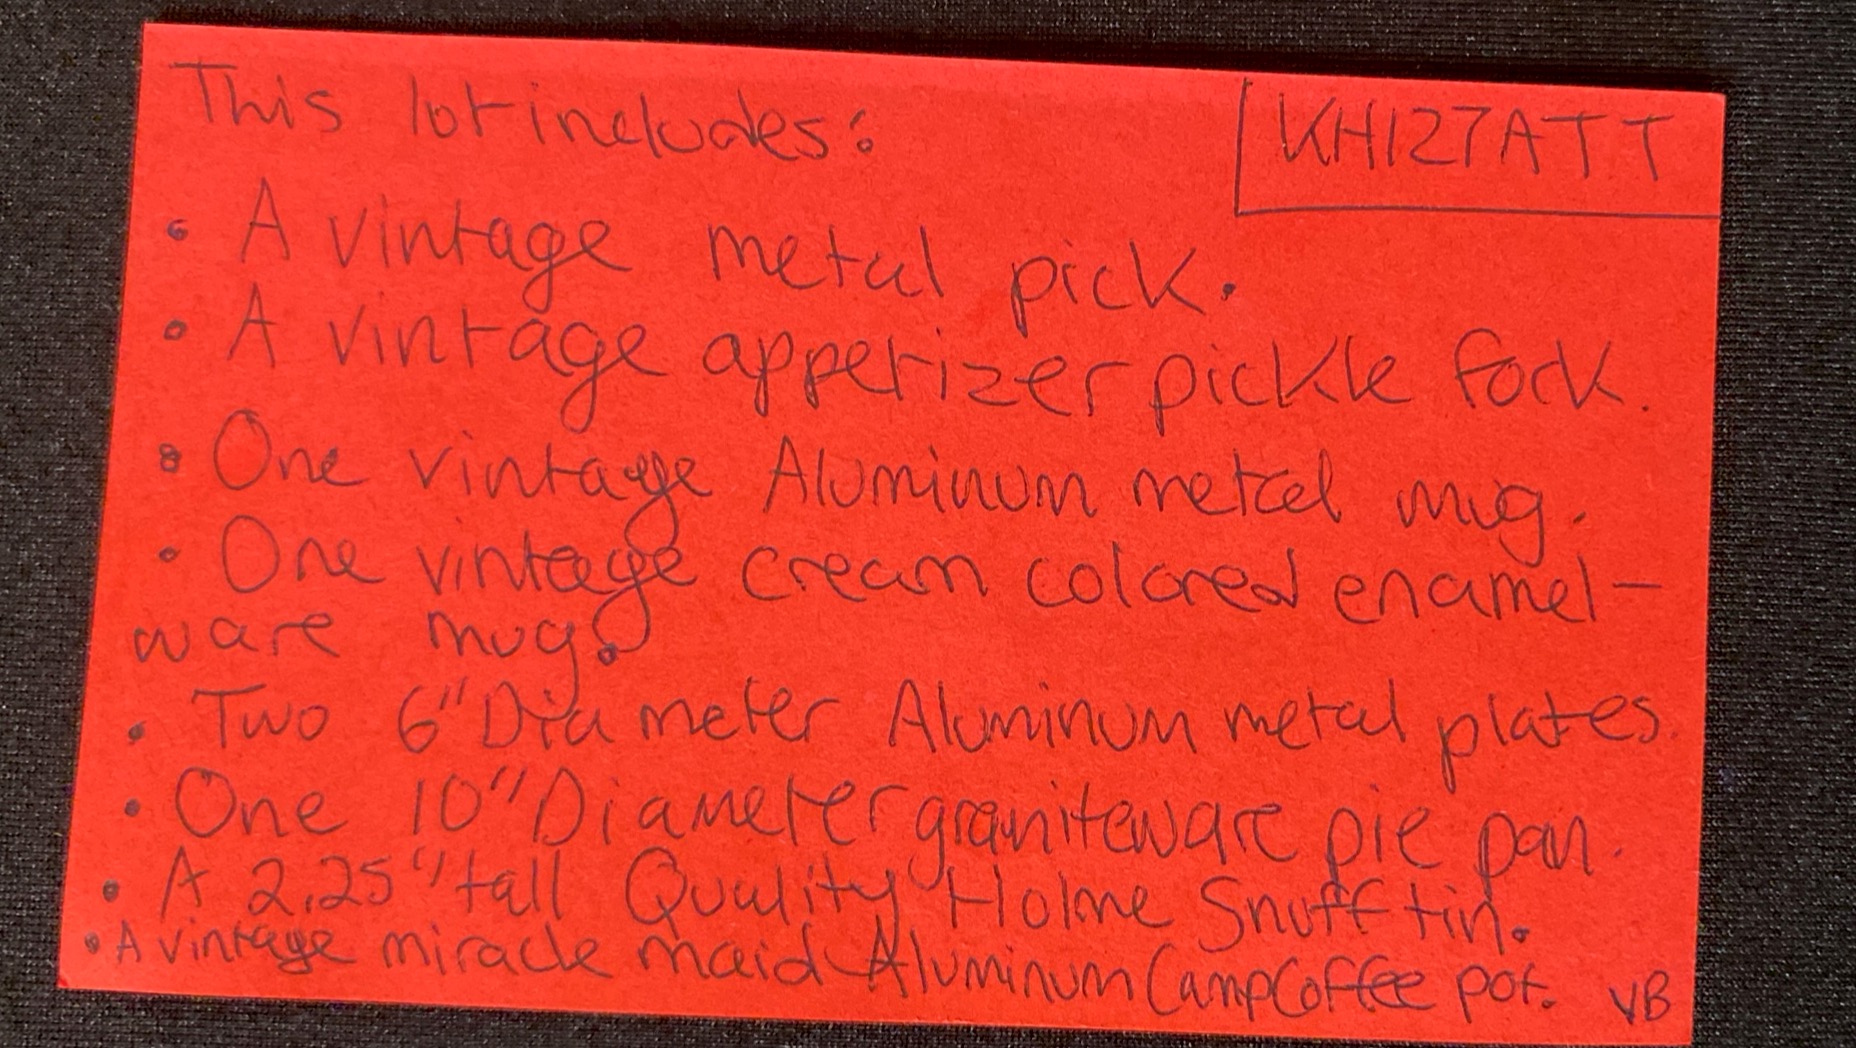 This lot includes: KH127ATT
• A vintage metal pick.
• A vintage appetizer pickle fork.
• One vintage Aluminum metal mug.
• One vintage cream colored enamel-
ware mug.
• Two 6" Diameter Aluminum metal plates.
• One 10" Diameter graniteware pie pan.
• A 2.25" tall Quality Holme Snuff tin.
• A vintage miracle maid Aluminum Camp Coffee pot. VB